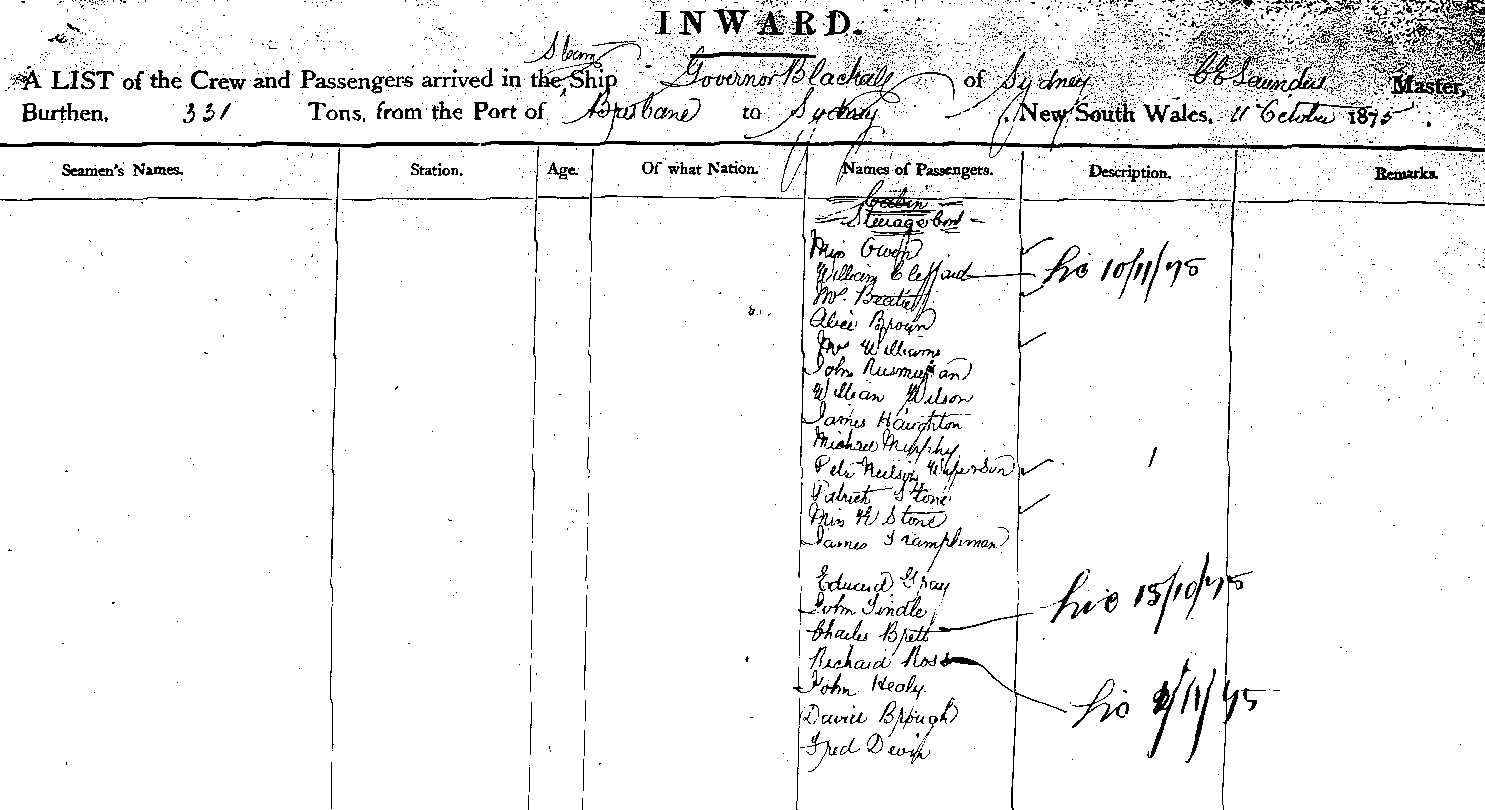 INWARD.
Steam
A LIST of the Crew and Passengers arrived in the Ship Governor Blackall of Sydney CC Saunders Master,
Burthen, 331 Tons, from the Port of Brisbane to Sydney New South Wales, 11 October 1875.
Seamen's Names. Station. Age. Of what Nation. Names of Passengers. Description. Remarks.
Cabin
Steerage Cont
Miss Owen
William Cleffard hic 10/11/75
Mr. Beattie
Alice Brown
Mr Williams
John
William Wilson
James Haughton
Michael Murphy
Peter Neilson Wife & Son
Patrick Stone
Miss W Stone
James Trampleman
Edward Gray
John Tindle hic 15/10/75
Charles Brett
Richard Ross
John Healy hic 2/11/75
David Brough
Fred Devin